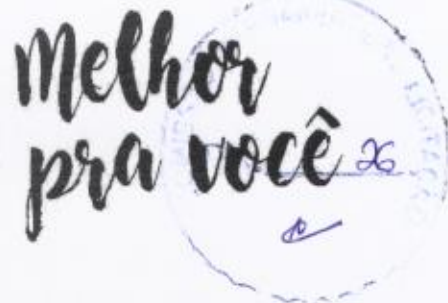 Melhor
pra você 26